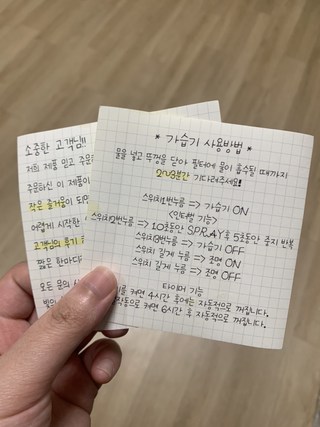 소중한 고객님!!
저희 제품 믿고
주문하신 이 제품이
작은 즐거움이 되었
어렵게 시작한
고객님의 후기
많은 한마디
모든 문의
* 가습기 사용방법 *
물을 넣고 뚜껑을 닫아 필터에 물이 흡수될 때까지
2~3분간 기다려주세요!
스위치1번누름 => 가습기 ON
<인터벌 기능>
스위치2번누름 => 10초동안 SPRAY후 5초동안 중지 반복
스위치3번누름 => 가습기 OFF
스위치 길게 누름 => 조명 ON
스위치 길게 누름 => 조명 OFF
타이머 기능
를 켜면 4시간 후에는 자동적으로 꺼집니다.
작동으로 켜면 6시간 후 자동적으로 꺼집니다.